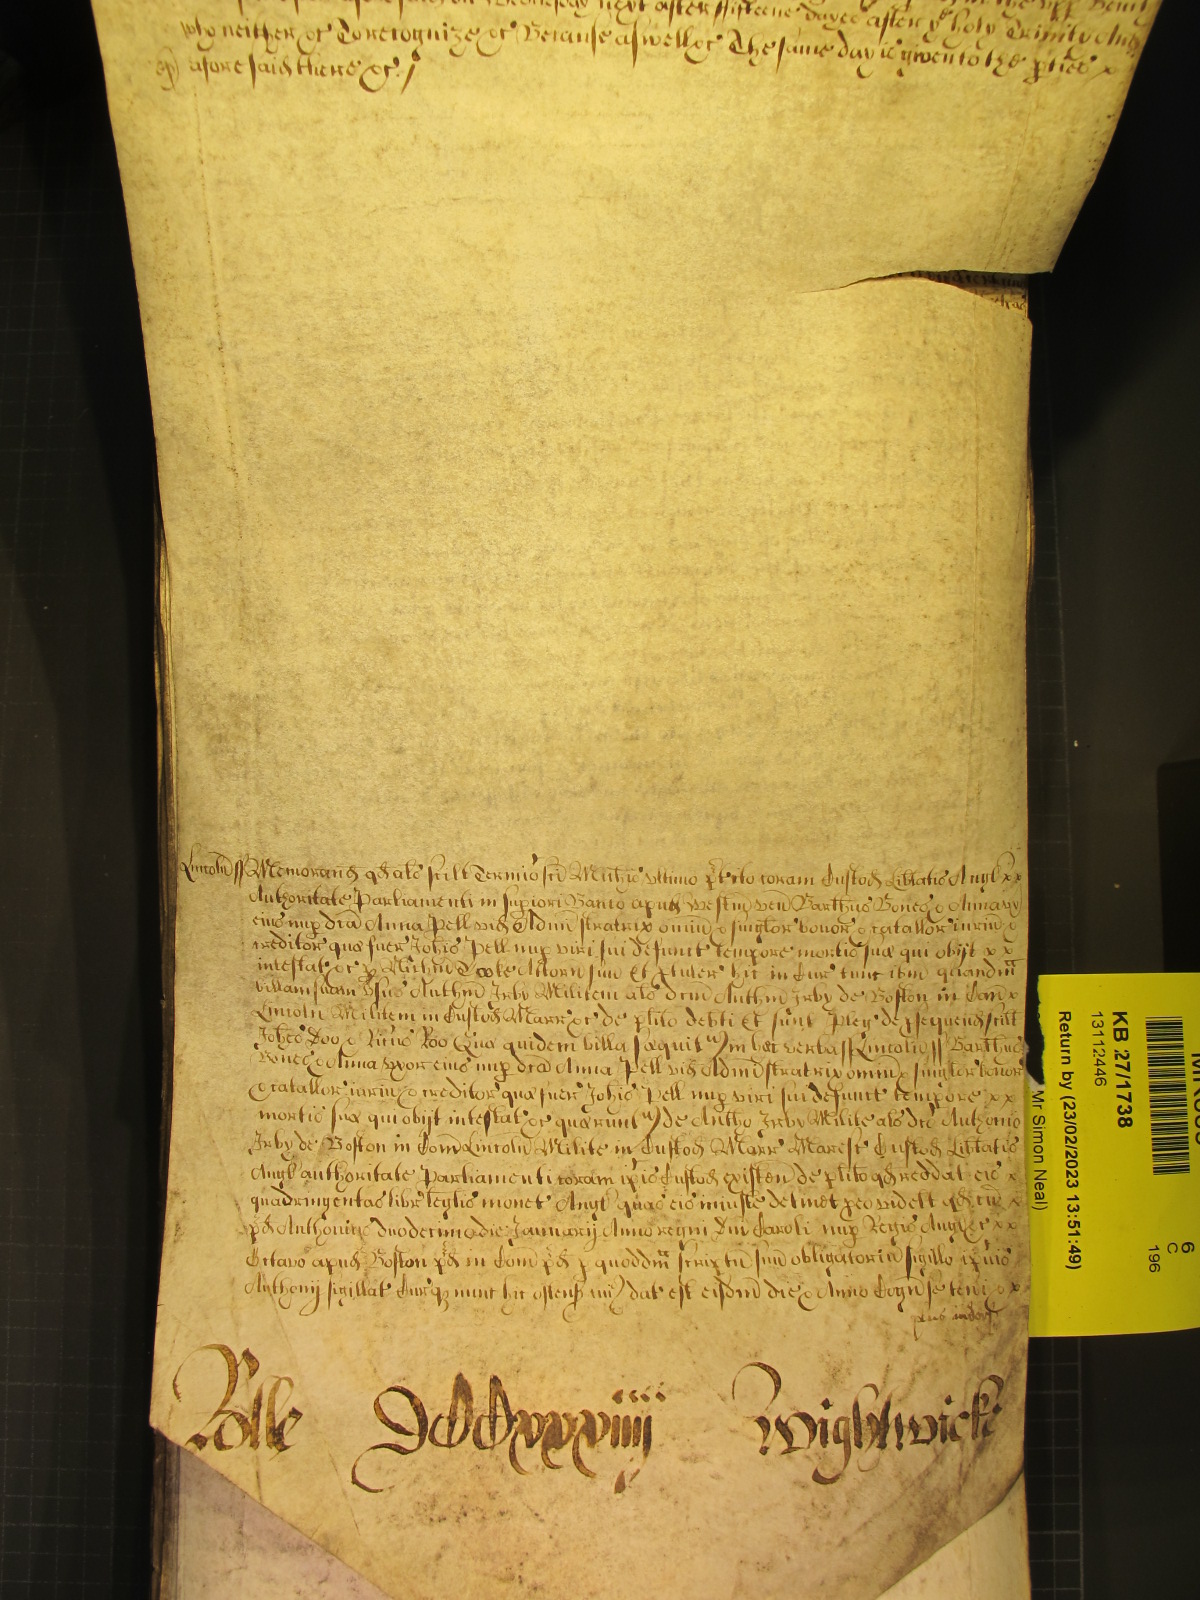 who neither &c To recognize &c Because aswell &c The same day is given to the pties x
aforesaid there &c /
Lincoln ss Memorand qd als scilt Termio sci Michis ultimo prito coram Custod Libtatis Angl x x
Authoritate Parliamenti in supiori Banco apud Westm ven Barthus Bones & Anna ux
eius nup dca Anna Pell vid Admstratrix omniu & singlor bonor & catallor iuriu &
creditor que fuer Johis Pell nup viri sui defunct tempore mortis sue qui obijt x x
intestat &c p Michm Cooke Attorn suu Et ptuler hic in Cur tunc ibm quandm
billam suam vsus Anthm Irby Militem als dcm Anthm Irby de Boston in Com x
Lincoln Militem in Custod Marr &c de plito debiti Et sunt pleg de psequend scilt
Johes Doo & Ricus Roo Que quidem billa sequit in hec verba ss Lincoln ss Barthus
Bones & Anna uxor eius nup dca Anna Pell vid Admstratrix omniu & singlor bonor
& catallor iuriu & creditor que fuer Johis Pell nup viri sui defunct tempore x x
mortis sue qui obijt intestat &c querunt de Antho Irby Milite als dco Anthonio
Irby de Boston in Com Lincoln Milite in Custod Marr Maresc Custod Libtatis
Angl authoritate Parliamenti coram ipis Custod existen de plito qd reddat eis x
quadringentas libr legalis monet Angl quas eis iniuste detinet p eo videlt qd cu x
pd Anthonius duodecimo die Januarij Anno regni Dni Caroli nup Regis Angl &c x x
Octavo apud Boston pd in Com pd p quoddm scriptu suu obligatoriu sigillo ipius
Anthonij sigillat Cur q nunc hic ostens cui dat est eisdm die & Anno Cogn se teneri x
Rolle DCCxxxviiij Wightwicke
KB 27/1738
13112446
Return by (23/02/2023 13:51:49)
Mr Simon Neal)
6
C
196